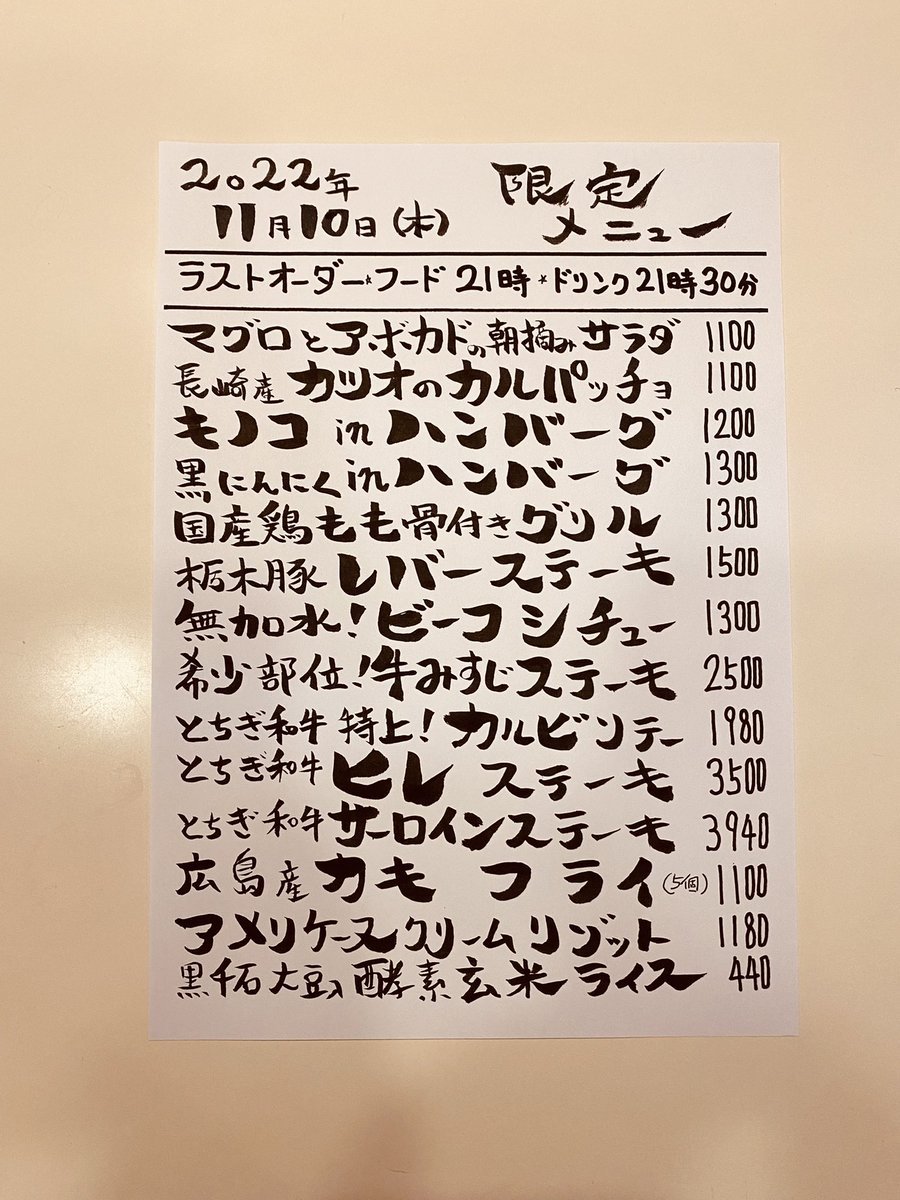 2022年 限定
11月10日(木) メニュー
ラストオーダー*フード 21時 *ドリンク21時30分
マグロとアボカドの朝摘みサラダ 1100
長崎産 カツオのカルパッチョ 1100
キノコ in ハンバーグ 1200
黒にんにく in ハンバーグ 1300
国産鶏もも骨付きグリル 1300
栃木豚 レバーステーキ 1500
無加水!ビーフシチュー 1300
希少部位!牛みすじステーキ 2500
とちぎ和牛 特上!カルビソテー 1980
とちぎ和牛 ヒレ ステーキ 3500
とちぎ和牛 サーロインステーキ 3940
広島産 カキ フライ(5個) 1100
アメリケーヌクリームリゾット 1180
黒千石大豆入酵素玄米ライス 440